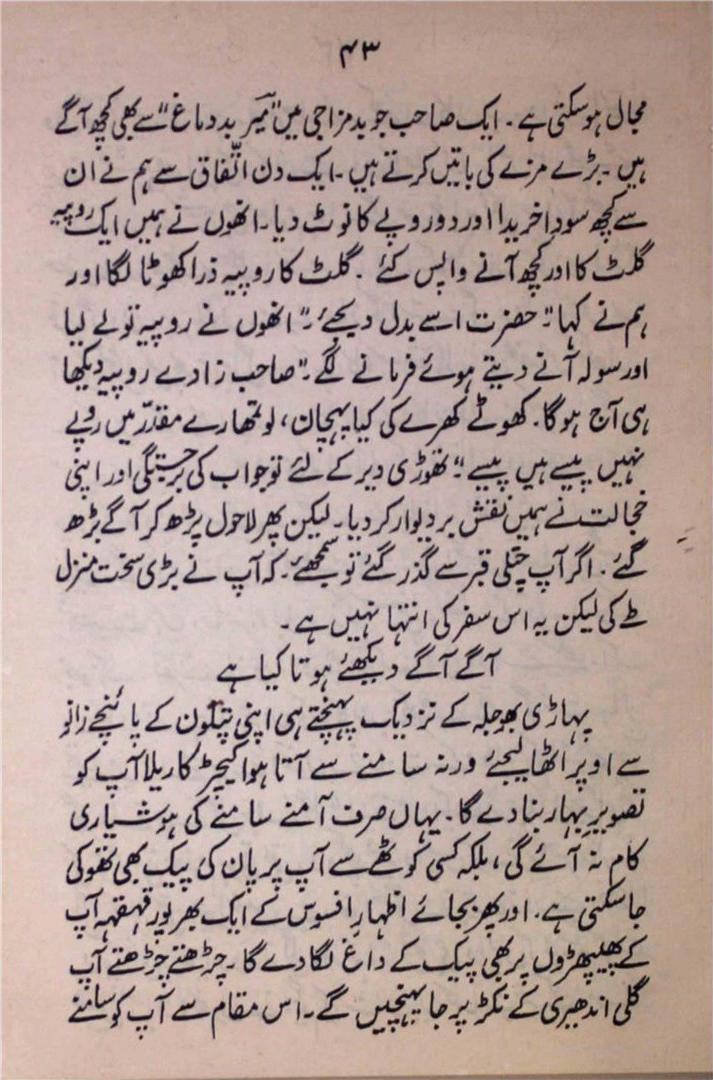 ۴۳
مجال ہوسکتی ہے ۔ ایک صاحب جو بدمزاجی میں "میرؔ بددماغ" سے بھی کچھ آگے
ہیں ۔ بڑے مزے کی باتیں کرتے ہیں ۔ ایک دن اتّفاق سے ہم نے ان
سے کچھ سودا خریدا اور دو روپے کا نوٹ دیا ۔ انھوں نے ہمیں ایک روپیہ
گلٹ کا اور کچھ آنے واپس کئے ۔ گلٹ کا روپیہ ذرا کھوٹا لگا اور
ہم نے کہا "حضرت اسے بدل دیجئے ۔" انھوں نے روپیہ تو لے لیا
اور سولہ آنے دیتے ہوئے فرمانے لگے ۔ "صاحب زادے روپیہ دیکھا
ہی آج ہوگا ۔ کھوٹے کھرے کی کیا پہچان، لو تمھارے مقدّر میں روپے
نہیں پیسے ہیں پیسے ۔" تھوڑی دیر کے لئے تو جواب کی برجستگی اور اپنی
خجالت نے ہمیں نقش بر دیوار کر دیا ۔ لیکن پھر لاحول پڑھ کر آگے بڑھ
گئے ۔ اگر آپ چتلی قبر سے گذر گئے تو سمجھئے ۔ کہ آپ نے بڑی سخت منزل
طے کی لیکن یہ اس سفر کی انتہا نہیں ہے ۔
آگے آگے دیکھئے ہوتا کیا ہے
پہاڑی بھوجلہ کے نزدیک پہنچتے ہی اپنی پتلون کے پائنچے زانو
سے اوپر اٹھا لیجئے ورنہ سامنے سے آتا ہوا کیچڑ کا ریلا آپ کو
تصویرِ بہار بنا دے گا ۔ یہاں صرف آمنے سامنے کی ہوشیاری
کام نہ آئے گی، بلکہ کسی کوٹھے سے آپ پر پان کی پیک بھی تھوکی
جا سکتی ہے ۔ اور پھر بجائے اظہارِ افسوس کے ایک بھرپور قہقہہ آپ
کے پھیپھڑوں پر بھی پیک کے داغ لگا دے گا ۔ چڑھتے چڑھتے آپ
گلی اندھیری کے نکڑ پر جا پہنچیں گے ۔ اس مقام سے آپ کو سامنے